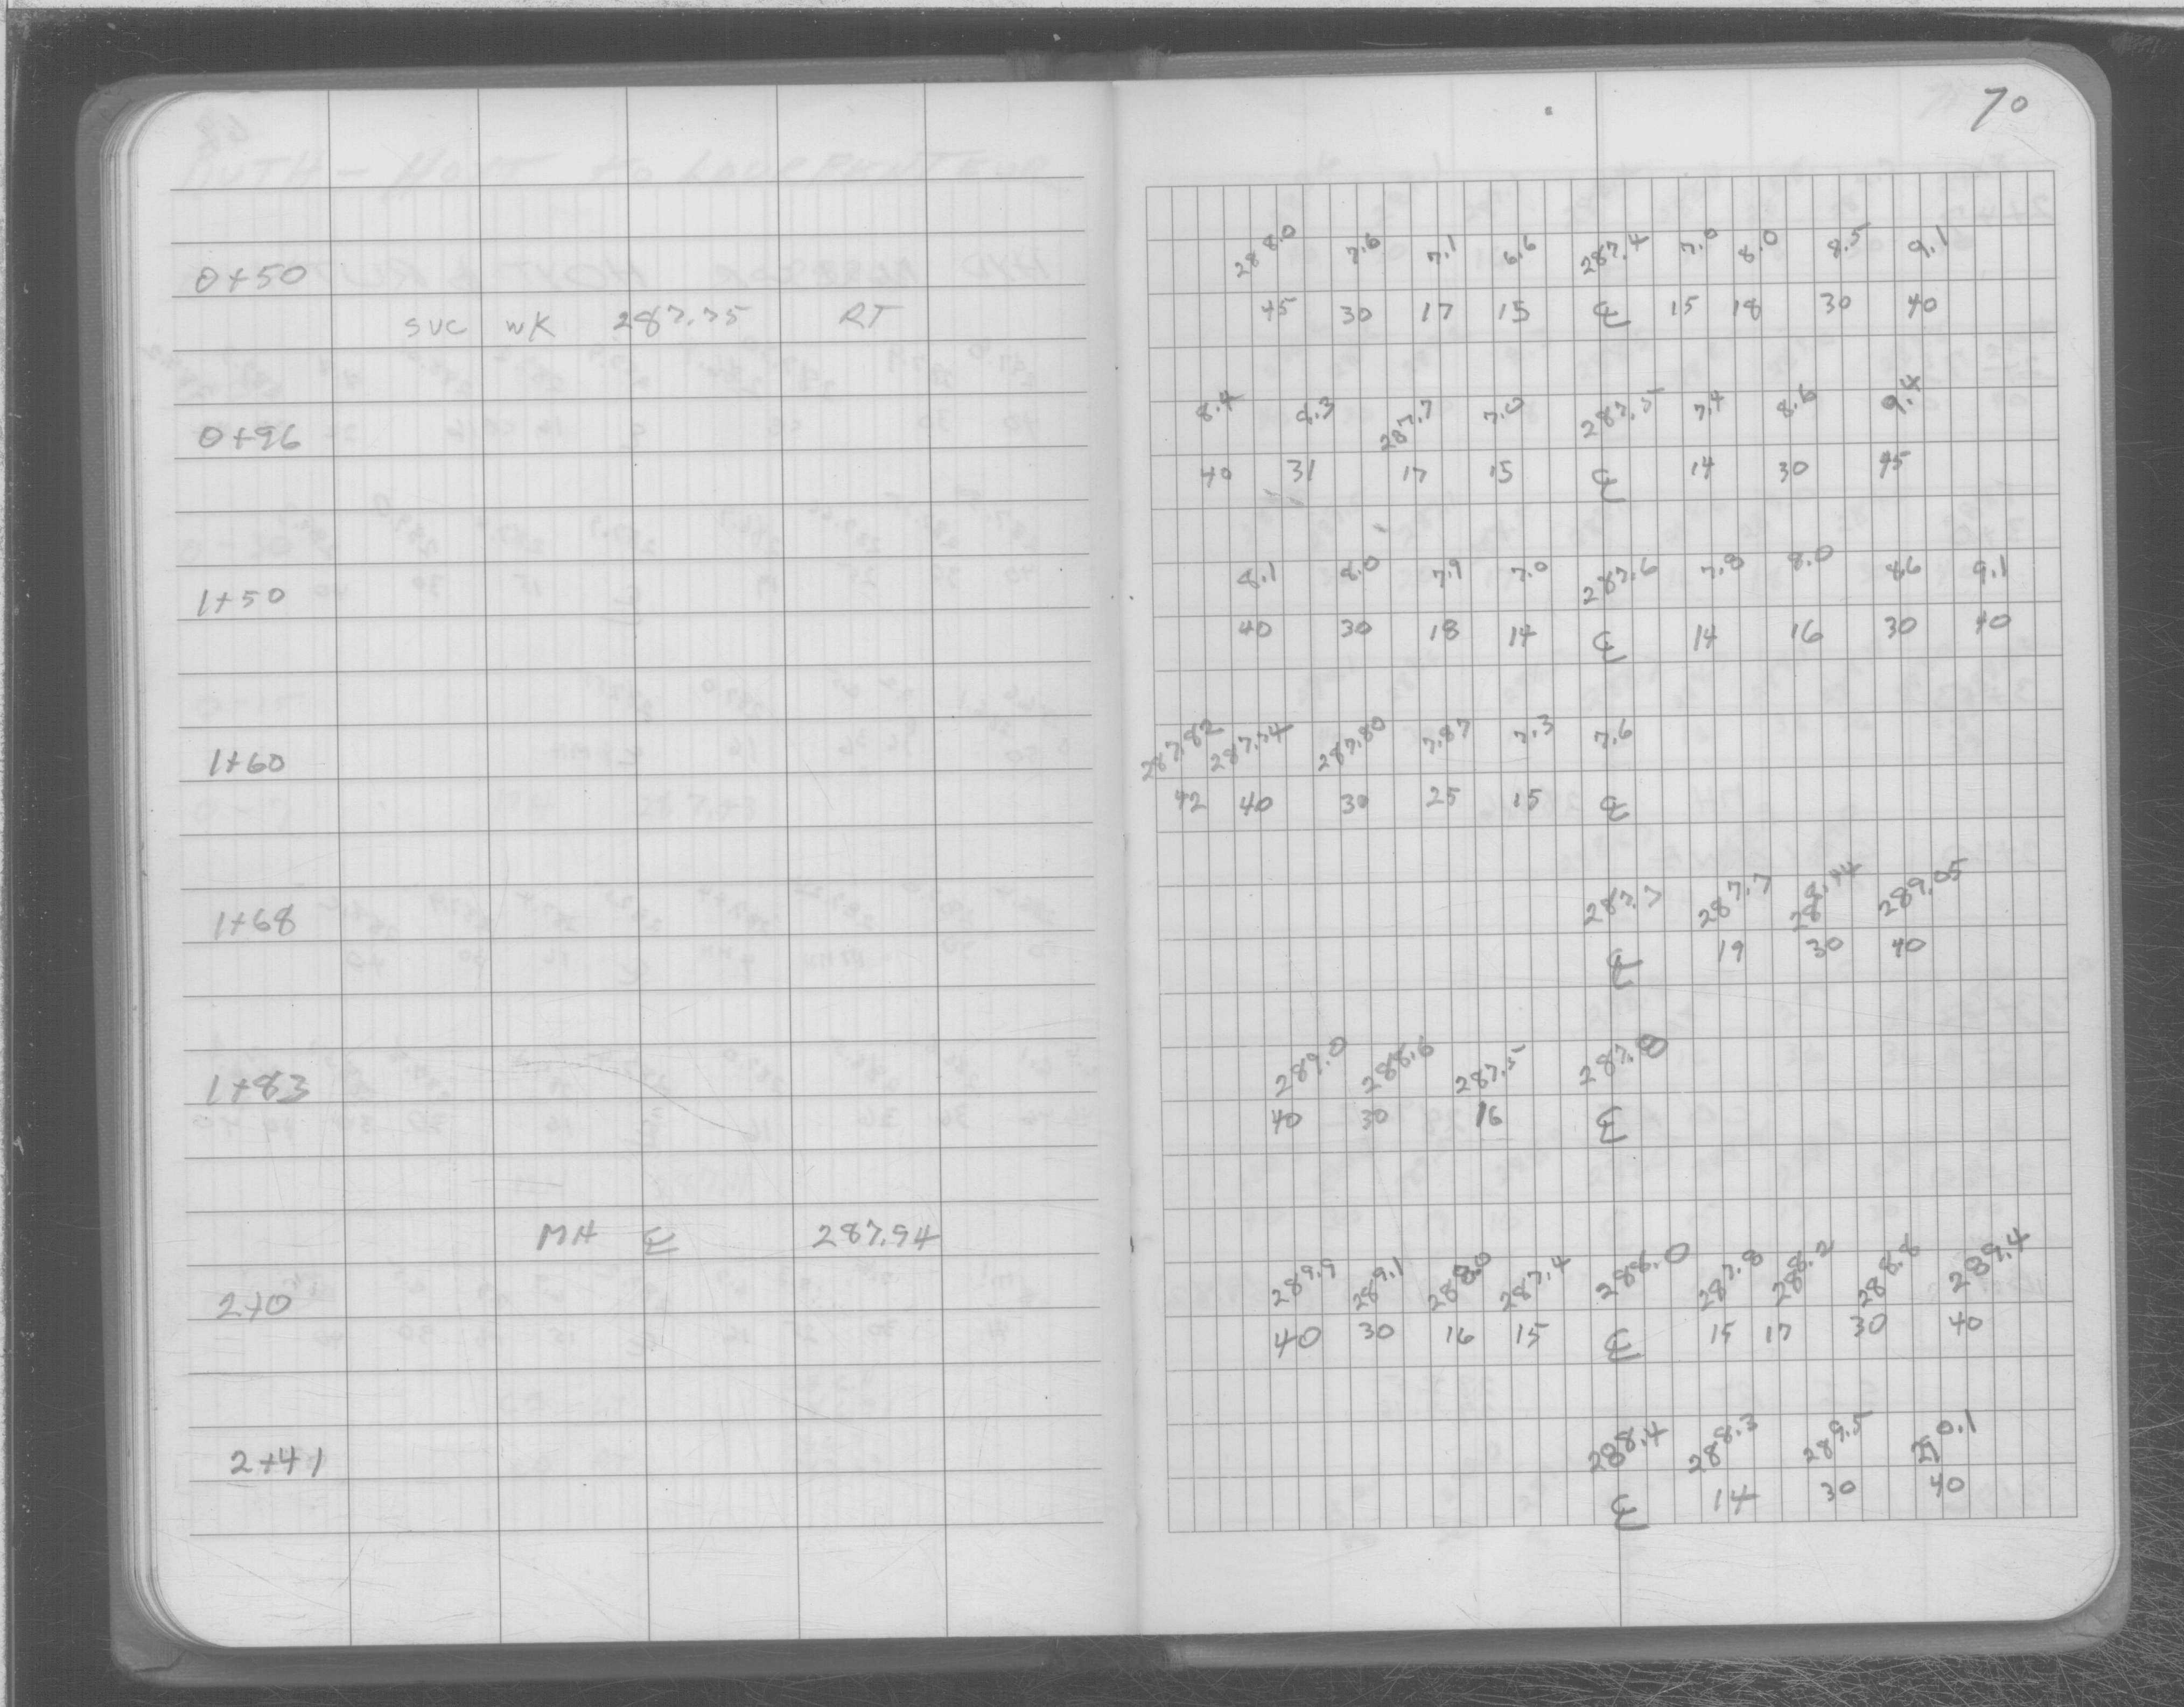 70
0+50 288.0 7.6 7.1 6.6 287.4 7.0 8.0 8.5 9.1
45 30 17 15 ℄ 15 18 30 40
SVC WK 287.75 RT
0+96 8.4 8.3 287.7 7.0 287.5 7.4 8.6 9.4
40 31 17 15 ℄ 14 30 45
1+50 8.1 8.0 7.9 7.0 287.6 7.8 8.0 8.6 9.1
40 30 18 14 ℄ 14 16 30 40
1+60 287.82 287.74 287.80 7.87 7.3 7.6
42 40 30 25 15 ℄
1+68 287.7 287.7 288.44 289.05
℄ 19 30 40
1+83 289.0 288.6 287.5 287.8
40 30 16 ℄
MH ℄ 287.94
2+0 289.9 289.1 288.0 287.4 288.0 287.8 288.2 288.8 289.4
40 30 16 15 ℄ 15 17 30 40
2+41 288.4 288.3 289.5 290.1
℄ 14 30 40